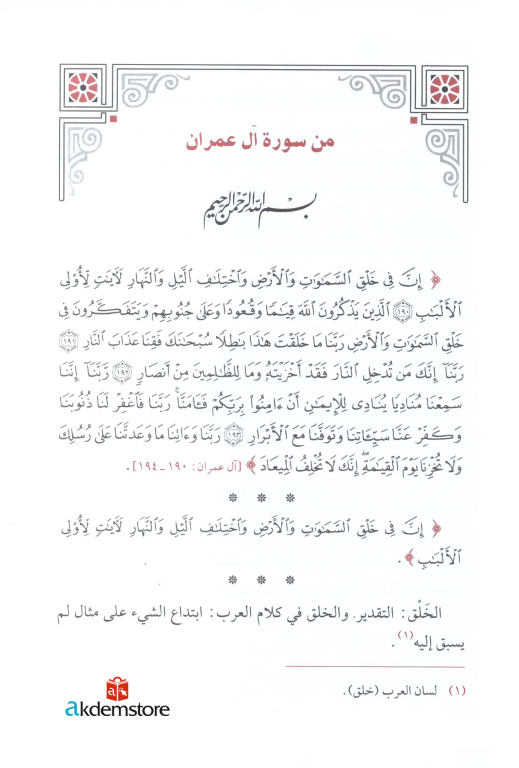 من سورة آل عمران
بسم الله الرحمن الرحيم
﴿ إِنَّ فِي خَلْقِ السَّمَٰوَٰتِ وَالْأَرْضِ وَاخْتِلَٰفِ الَّيْلِ وَالنَّهَارِ لَآيَٰتٍ لِّأُولِي
الْأَلْبَٰبِ ١٩٠ الَّذِينَ يَذْكُرُونَ اللَّهَ قِيَٰمًا وَقُعُودًا وَعَلَىٰ جُنُوبِهِمْ وَيَتَفَكَّرُونَ فِي
خَلْقِ السَّمَٰوَٰتِ وَالْأَرْضِ رَبَّنَا مَا خَلَقْتَ هَٰذَا بَٰطِلًا سُبْحَٰنَكَ فَقِنَا عَذَابَ النَّارِ ١٩١
رَبَّنَا إِنَّكَ مَن تُدْخِلِ النَّارَ فَقَدْ أَخْزَيْتَهُ وَمَا لِلظَّٰلِمِينَ مِنْ أَنصَارٍ ١٩٢ رَّبَّنَا إِنَّنَا
سَمِعْنَا مُنَادِيًا يُنَادِي لِلْإِيمَٰنِ أَنْ ءَامِنُوا بِرَبِّكُمْ فَـَٔامَنَّا رَبَّنَا فَاغْفِرْ لَنَا ذُنُوبَنَا
وَكَفِّرْ عَنَّا سَيِّـَٔاتِنَا وَتَوَفَّنَا مَعَ الْأَبْرَارِ ١٩٣ رَبَّنَا وَءَاتِنَا مَا وَعَدتَّنَا عَلَىٰ رُسُلِكَ
وَلَا تُخْزِنَا يَوْمَ الْقِيَٰمَةِ إِنَّكَ لَا تُخْلِفُ الْمِيعَادَ ﴾ [آل عمران: ١٩٠ـ١٩٤].
* * *
﴿ إِنَّ فِي خَلْقِ السَّمَٰوَٰتِ وَالْأَرْضِ وَاخْتِلَٰفِ الَّيْلِ وَالنَّهَارِ لَآيَٰتٍ لِّأُولِي
الْأَلْبَٰبِ ﴾.
* * *
الخَلْق: التقدير. والخلق في كلام العرب: ابتداع الشيء على مثال لم
يسبق إليه(١).
(١) لسان العرب (خلق).
akdemstore